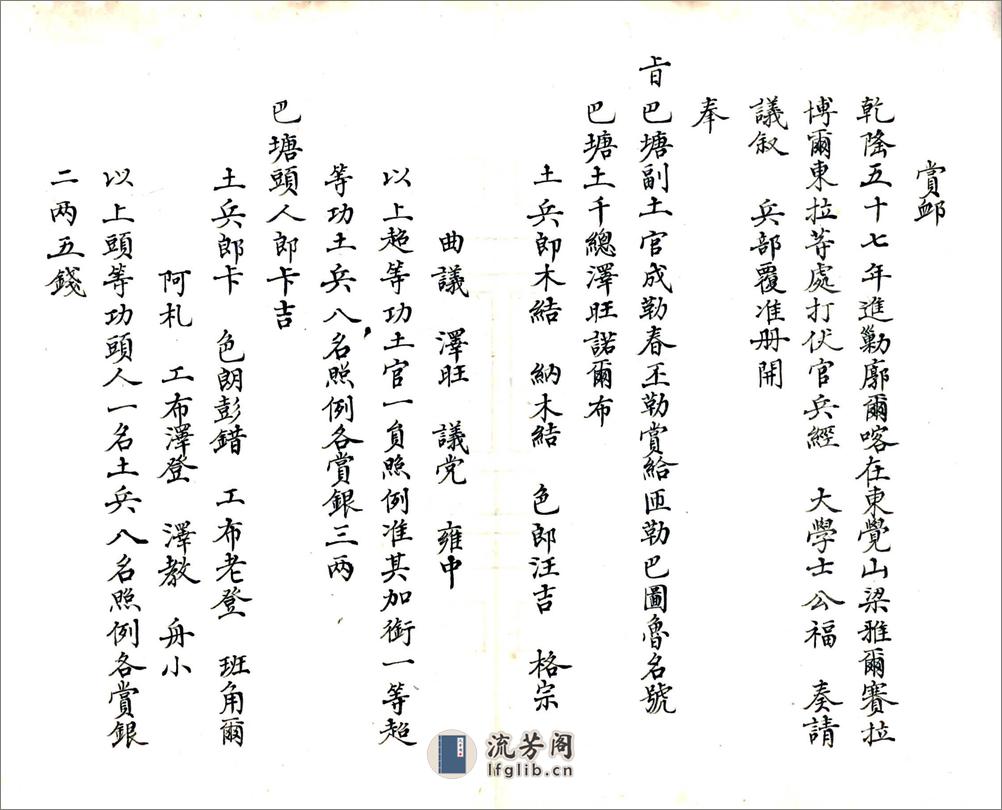 賞䘏
乾隆五十七年進勦廓爾喀在東覺山梁雅爾賽拉
博爾東拉等處打仗官兵經 大學士公福 奏請
議叙 兵部覆准册開
奉
旨巴塘副土官成勒春丕勒賞給匝勒巴圖魯名號
巴塘土千總澤旺諾爾布
土兵郎木結 納木結 色郎汪吉 格宗
曲議 澤旺 議党 雍中
以上超等功土官一負照例准其加銜一等超
等功土兵八名照例各賞銀三两
巴塘頭人郎卡吉
土兵郎卡 色朗彭錯 工布老登 班角爾
阿札 工布澤登 澤教 舟小
以上頭等功頭人一名土兵八名照例各賞銀
二两五錢
流芳阁
lfglib.cn